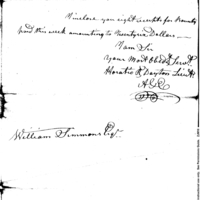 I inclose you eight receipts for Bounty
paid this week amounting to Twenty six Dollars
I am Sir
Your Most Obdt Servt
Horatio R Dayton Lieut
William Simmons Esqr